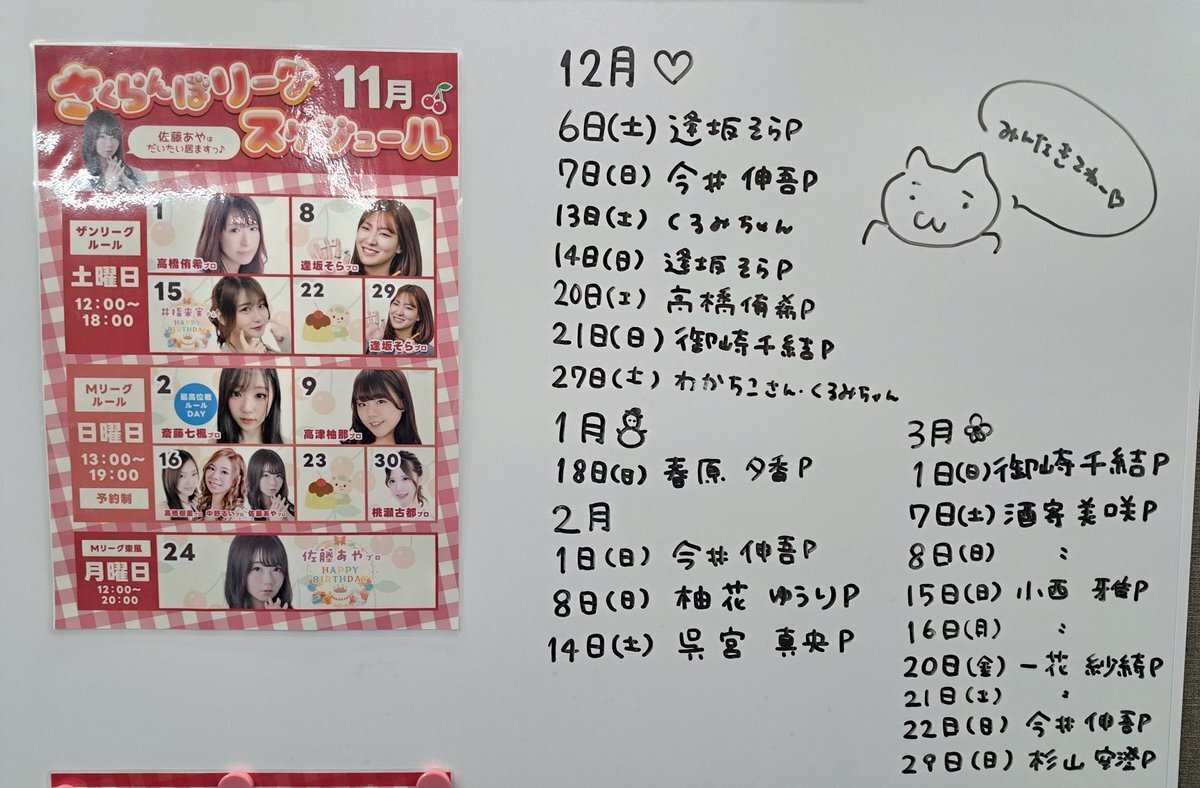 さくらんぼリーグ 11月
スケジュール
佐藤あやは
だいたい居ますっ♪
ザンリーグ
ルール
土曜日
12:00〜
18:00
1
高橋侑希プロ
8
逢坂そらプロ
15
井指来実プロ
HAPPY
BIRTHDAY
22
29
逢坂そらプロ
Mリーグ
ルール
日曜日
13:00〜
19:00
予約制
2
最高位戦
ルール
DAY
斎藤七楓プロ
9
高津柚那プロ
16
高橋樹里プロ 中野るいプロ 佐藤あやプロ
23
30
桃瀬古都プロ
Mリーグ東風
月曜日
12:00〜
20:00
24
佐藤あやプロ
HAPPY
BIRTHDAY
12月♡
6日(土) 逢坂そらP
7日(日) 今井 伸吾P
13日(土) くるみちゃん
14日(日) 逢坂そらP
20日(土) 高橋侑希P
21日(日) 御崎千結P
27日(土) わかちこさん・くるみちゃん
1月
18日(日) 春原 夕香P
2月
1日(日) 今井 伸吾P
8日(日) 柚花 ゆうりP
14日(土) 呉宮 真央P
みんなきてねー
3月
1日(日)御崎千結P
7日(土) 酒寄美咲P
8日(日) 〃
15日(日) 小西 雅P
16日(月) 〃
20日(金) 一花 紗綺P
21日(土) 〃
22日(日) 今井 伸吾P
29日(日) 杉山 空澄P